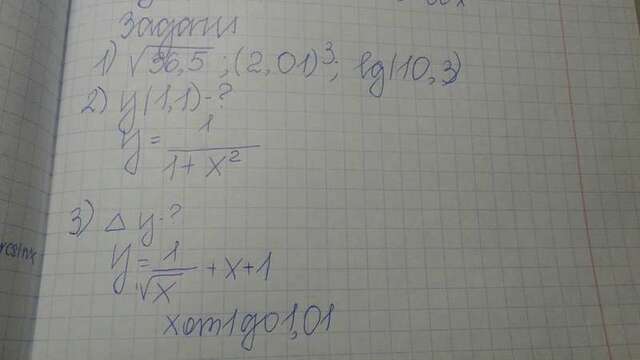 Задани
1) √36,5 ; (2,01)³; lg(10,3)
2) y(1,1)-?
y = 1/(1+x²)
3) Δy-?
y = 1/√x + x + 1
x от 1 до 1,01